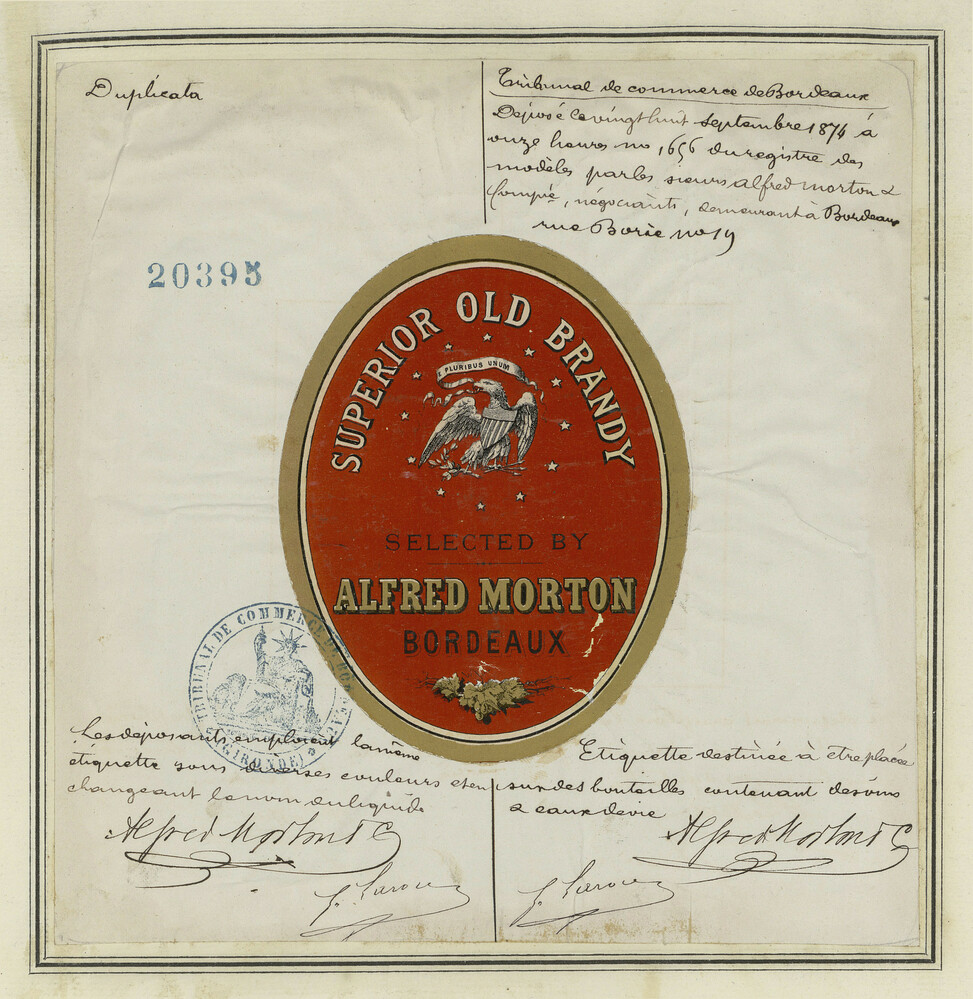 Duplicata
Tribunal de commerce de Bordeaux
Déposé le vingt huit septembre 1874 à
onze heures no 1656 du registre des
modèles par les sieurs alfred morton &
Compie, négociants, demeurant à Bordeaux
rue Borie no 19
20395
SUPERIOR OLD BRANDY
E PLURIBUS UNUM
SELECTED BY
ALFRED MORTON
BORDEAUX
TRIBUNAL DE COMMERCE DE BORDEAUX
(GIRONDE)
Les déposants emploient la même
étiquette sous diverses couleurs et en
changeant le nom du liquide
Alfred Morton & C
Etiquette destinée à être placée
sur des bouteilles contenant des vins
& eaux de vie
Alfred Morton & C